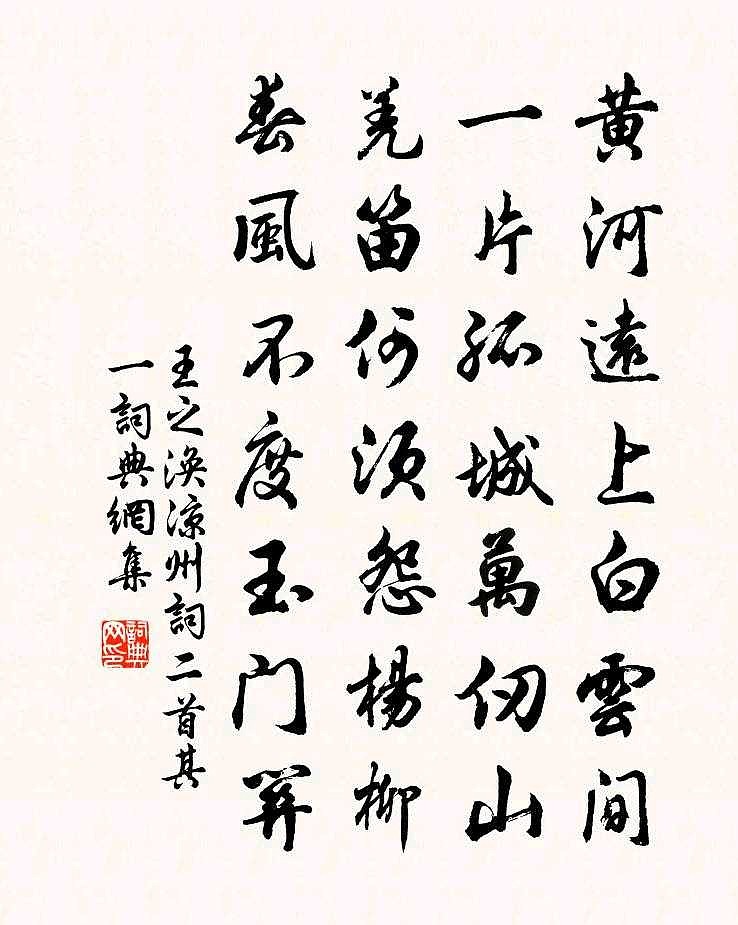 黄河遠上白雲间
一片孤城萬仞山
羌笛何須怨楊柳
春風不度玉门関
王之渙凉州詞二首其
一詞典網集
詞典
网印